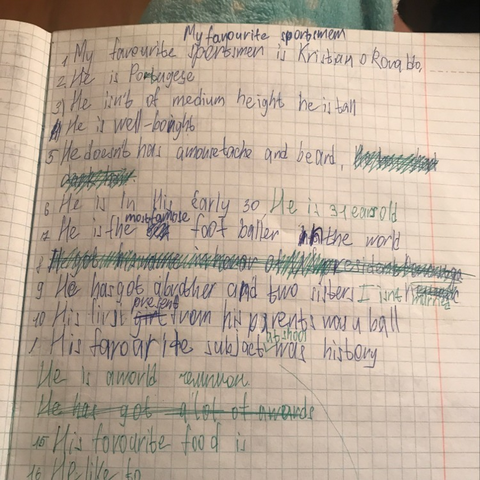 My favourite sportsmen
1 My favourite sportsmen is Kristiano Ronaldo.
2. He is Portugese
3 He isn't of medium height he is tall
4 He is well-boight
5 He doesn't has a moustache and beard,
6 He is in His Early 30 He is 31 earsold
7 He is the most famose foot baller in the world
8 He got
9 He has got a brother and two sisters I isn't married
10 His first present from his parents was a ball
1 His favourite subject at shool was history
He is a world
He has got a lot of awards
15 His favourite food is
16 He like to